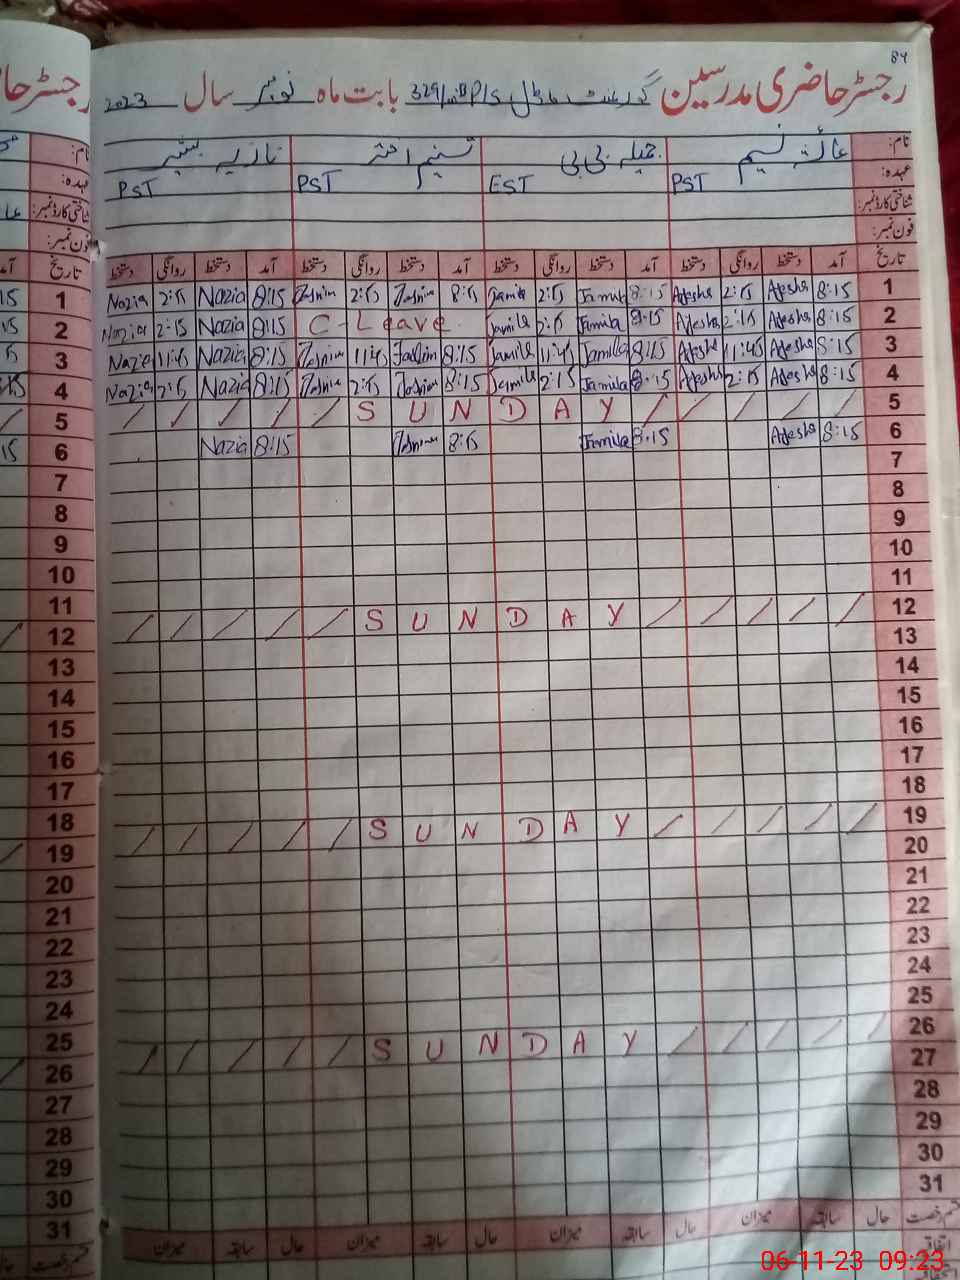 84
رجسٹر حاضری مدرسین گورنمنٹ ماڈل P/S 329 بابت ماہ نومبر سال 2023
نام: عائشہ نسیم جمیلہ بی بی تسنیم اختر نازیہ بشیر
عہدہ: PST EST PST PST
شناختی کارڈ نمبر:
فون نمبر:
تاریخ آمد دستخط روانگی دستخط آمد دستخط روانگی دستخط آمد دستخط روانگی دستخط آمد دستخط روانگی دستخط تاریخ
1 Nazia 2:15 Nazia 8:15 Tasnim 2:15 Tasnim 8:15 Jamila 2:15 Jamila 8:15 Ayesha 2:15 Ayesha 8:15 1
2 Nazia 2:15 Nazia 8:15 C-Leave Jamila 2:15 Jamila 8:15 Ayesha 2:15 Ayesha 8:15 2
3 Nazia 11:45 Nazia 8:15 Tasnim 11:45 Tasnim 8:15 Jamila 11:45 Jamila 8:15 Ayesha 11:45 Ayesha 8:15 3
4 Nazia 2:15 Nazia 8:15 Tasnim 2:15 Tasnim 8:15 Jamila 2:15 Jamila 8:15 Ayesha 2:15 Ayesha 8:15 4
5 SUNDAY 5
6 Nazia 8:15 Tasnim 8:15 Jamila 8:15 Ayesha 8:15 6
7 7
8 8
9 9
10 10
11 11
12 SUNDAY 12
13 13
14 14
15 15
16 16
17 17
18 18
19 SUNDAY 19
20 20
21 21
22 22
23 23
24 24
25 25
26 SUNDAY 26
27 27
28 28
29 29
30 30
31 31
قسم رخصت حال سابقہ میزان حال سابقہ میزان حال سابقہ میزان حال سابقہ میزان قسم رخصت
اتفاقیہ
06-11-23 09:23